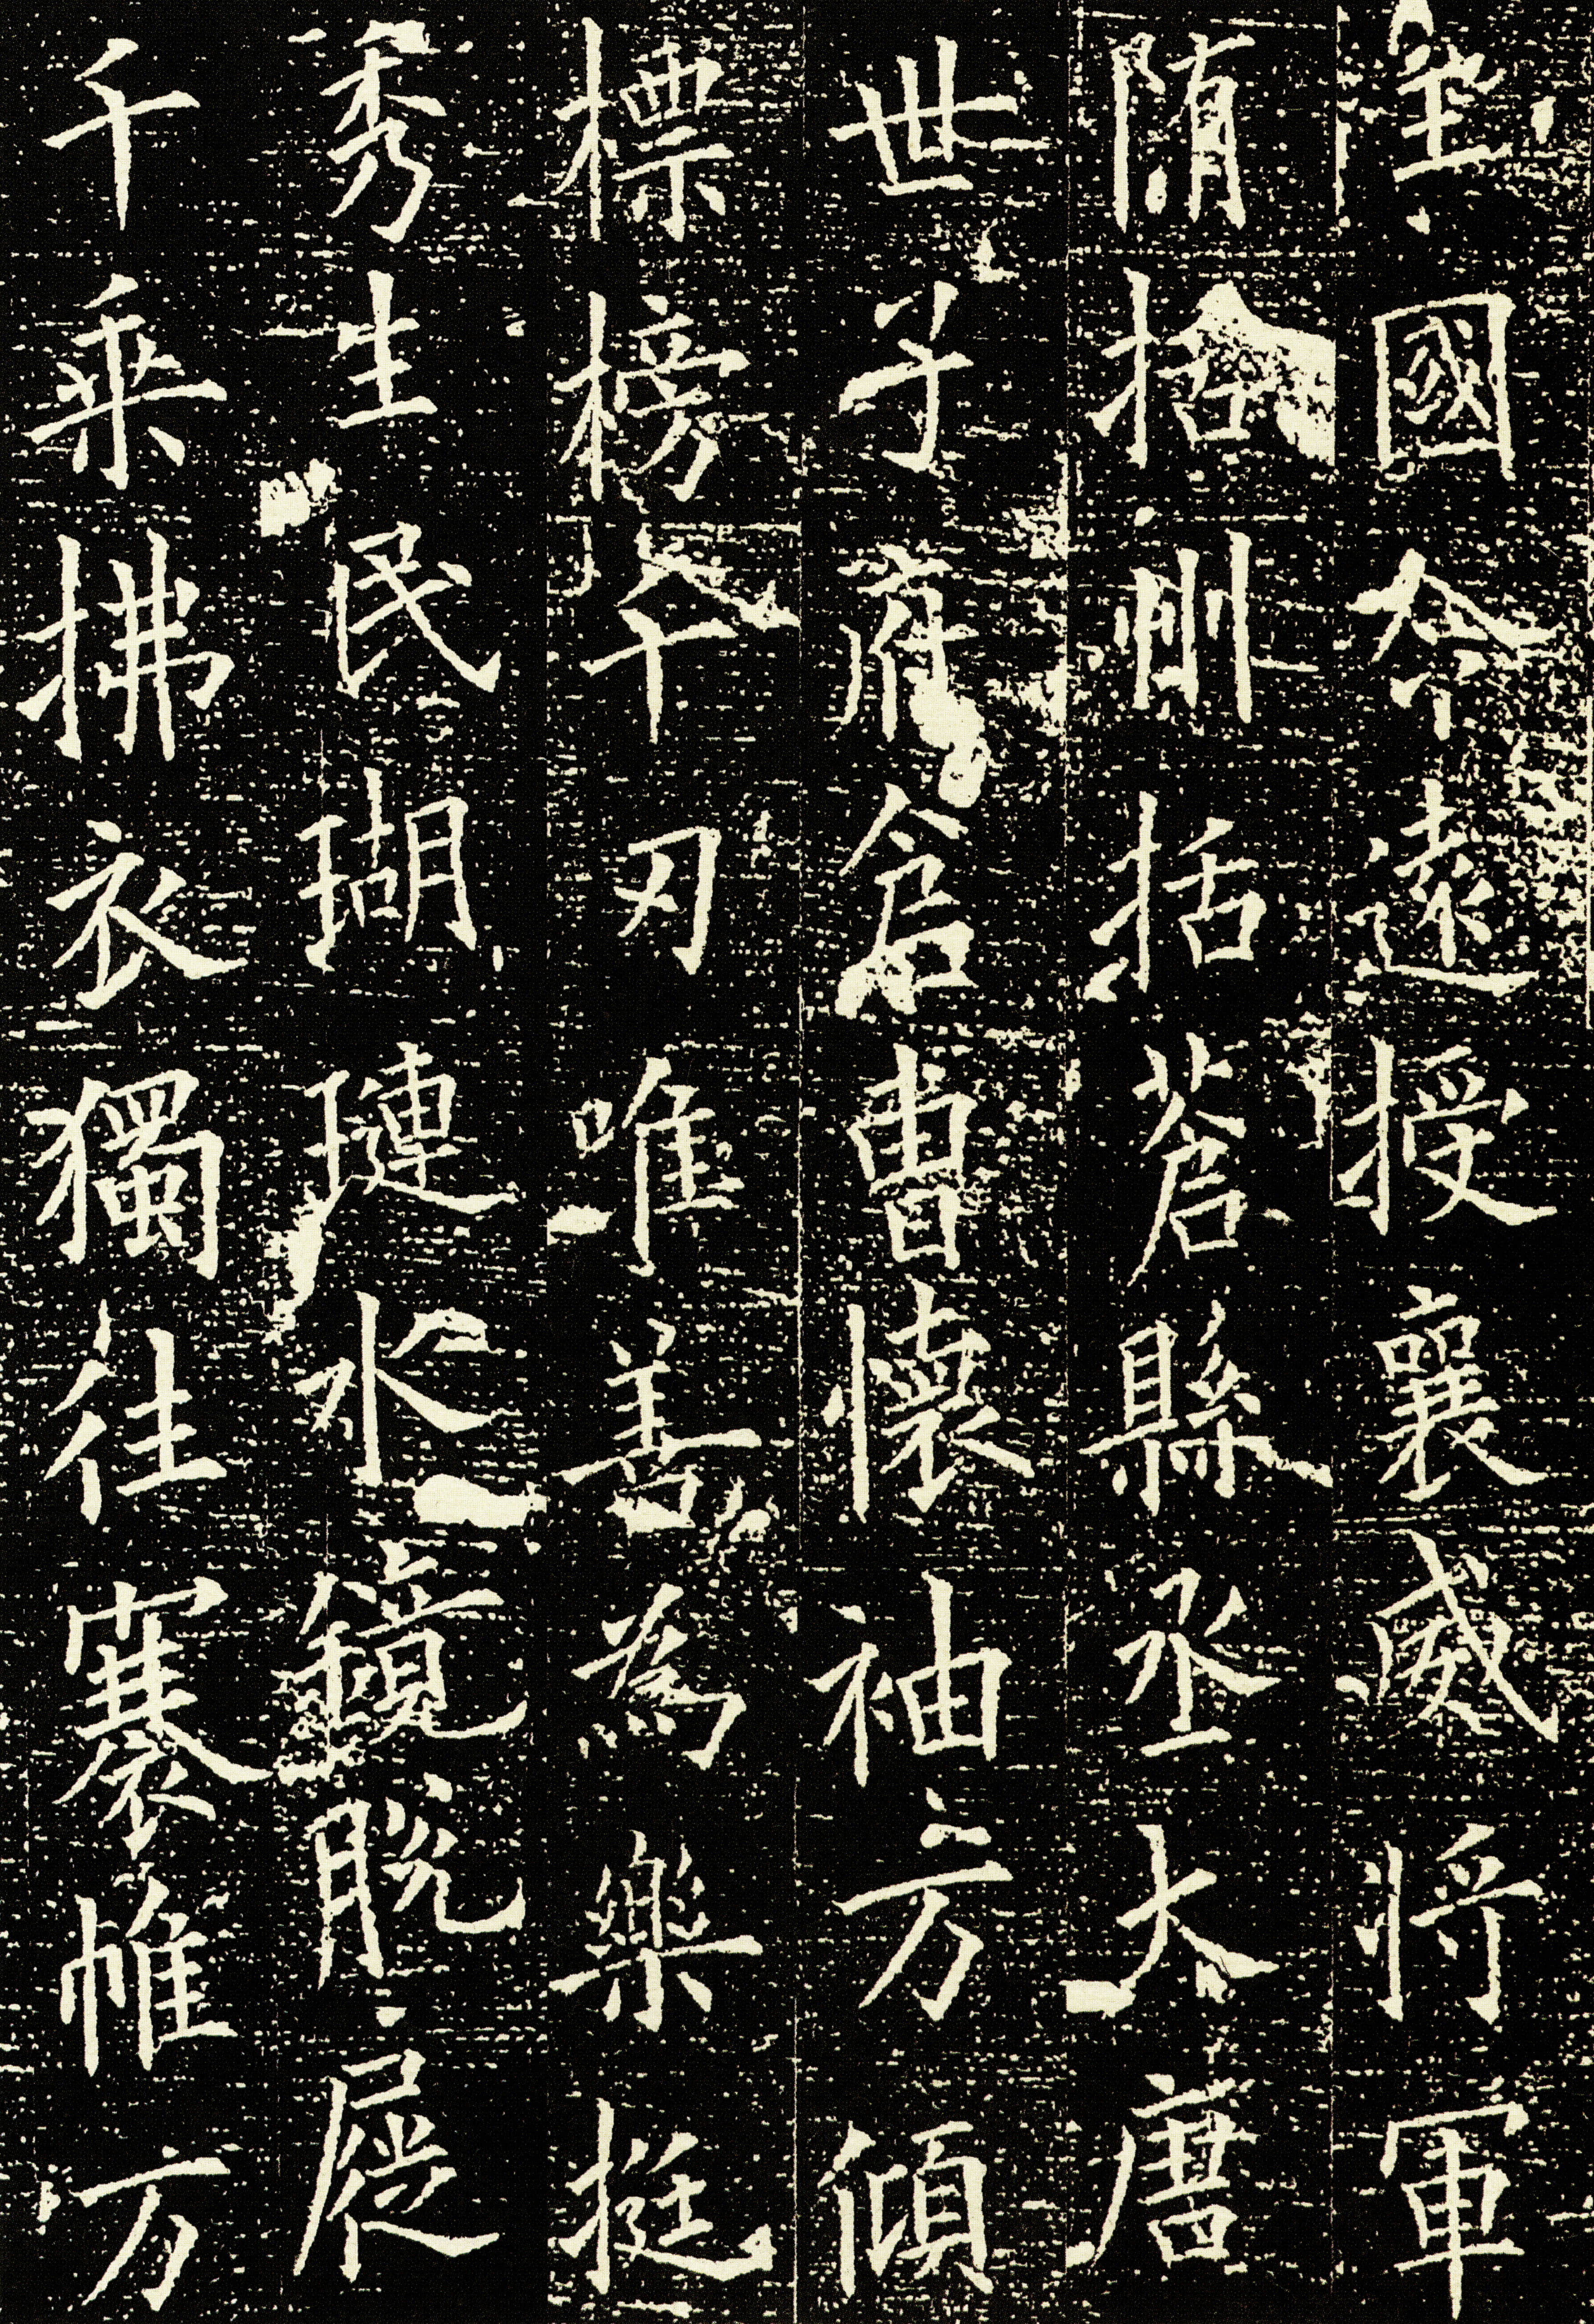 國令遠授襄威將軍
隋括州括蒼縣丞大唐
世子府倉曹懷袖方傾
標榜千刃唯善為樂挺
秀生民瑚璉水鏡脫屣
千乘拂衣獨往褰帷方